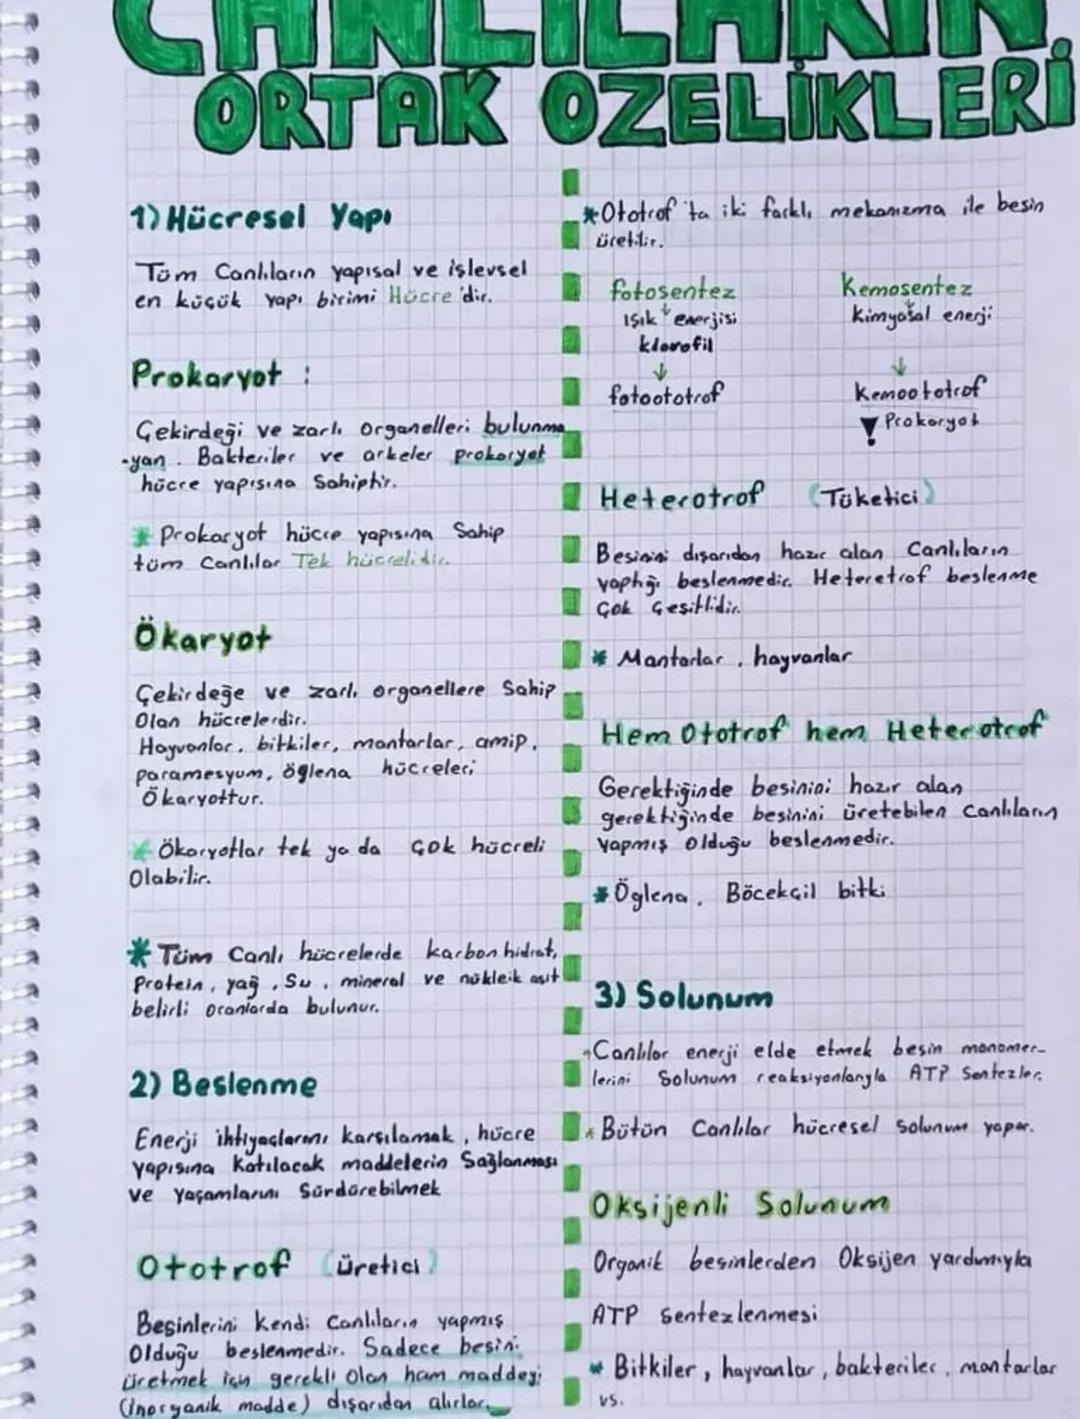 CANLILARIN
ORTAK ÖZELİKLERİ
1) Hücresel Yapı
Tüm Canlıların yapısal ve işlevsel
en küçük yapı birimi Hücre'dir.
Prokaryot :
Çekirdeği ve zarlı organelleri bulunma
-yan. Bakteriler ve arkeler prokaryot
hücre yapısına Sahiptir.
* Prokaryot hücre yapısına Sahip
tüm Canlılar Tek hücrelidir.
Ökaryot
Çekirdeğe ve zarlı organellere Sahip
Olan hücrelerdir.
Hayvanlar, bitkiler, mantarlar, amip,
paramesyum, öglena hücreleri
Ökaryottur.
* Ökaryotlar tek ya da Çok hücreli
Olabilir.
* Tüm Canlı hücrelerde karbonhidrat,
Protein, yağ, Su, mineral ve nükleik asit
belirli oranlarda bulunur.
2) Beslenme
Enerji ihtiyaçlarını karşılamak, hücre
yapısına katılacak maddelerin Sağlanması
ve yaşamlarını Sürdürebilmek
Ototrof (üretici)
Besinlerini kendi Canlıların yapmış
Olduğu beslenmedir. Sadece besini
üretmek için gerekli Olan ham maddeyi
(inorganik madde) dışarıdan alırlar.
* Ototrof'ta iki farklı mekanizma ile besin
üretilir.
fotosentez Kemosentez
Işık enerjisi Kimyasal enerji
klorofil
fotoototrof Kemoototrof
! Prokaryot
Heterotrof (Tüketici)
Besinini dışarıdan hazır alan Canlıların
yaptığı beslenmedir. Heteretrof beslenme
Çok Çeşitlidir.
* Mantarlar, hayvanlar
Hem Ototrof hem Heterotrof
Gerektiğinde besinini hazır alan
gerektiğinde besinini üretebilen Canlıların
yapmış olduğu beslenmedir.
* Öglena, Böcekçil bitki
3) Solunum
Canlılar enerji elde etmek besin monomer-
lerini Solunum reaksiyonlarıyla ATP Sentezler.
* Bütün Canlılar hücresel solunum yapar.
Oksijenli Solunum
Organik besinlerden Oksijen yardımıyla
ATP Sentezlenmesi
* Bitkiler, hayvanlar, bakteriler, mantarlar
vs.